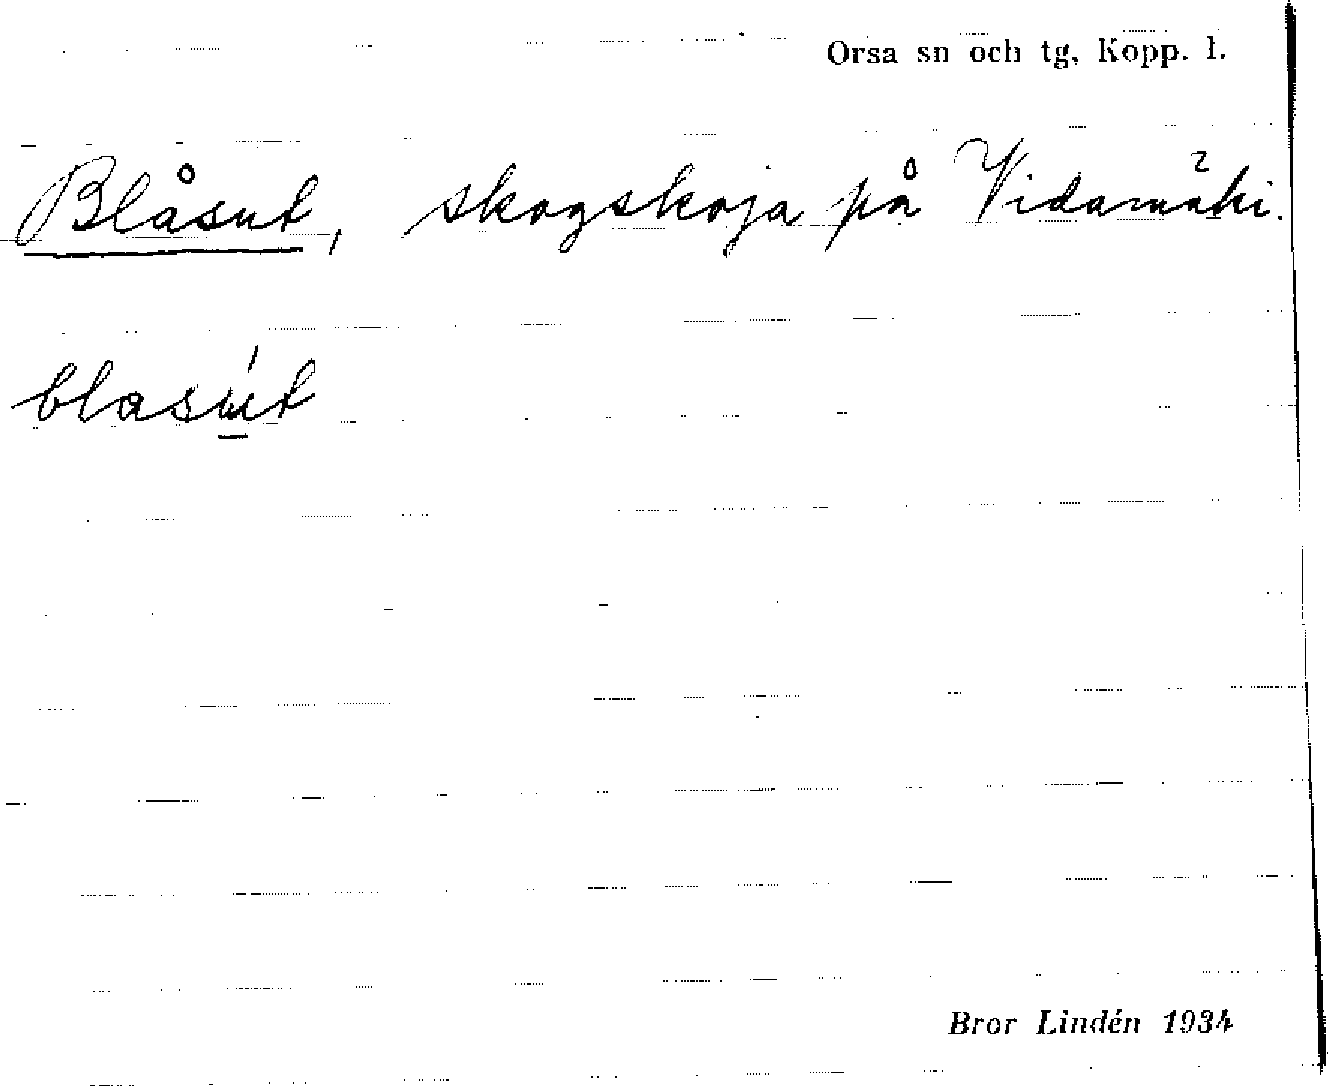 Orsa sn och tg, Kopp. l.
Blåsut, skogskoja på Vidamäki.
blasút
Bror Lindén 1934